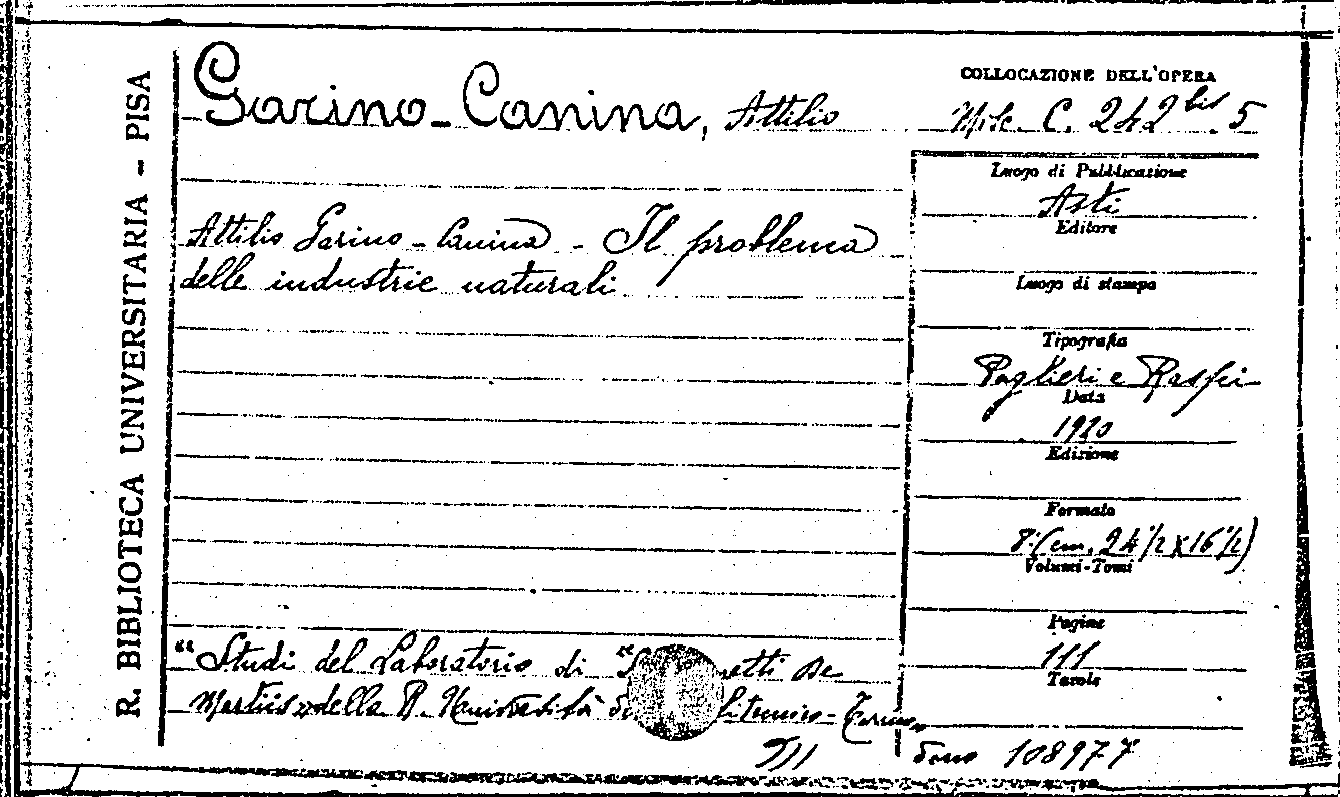 R. BIBLIOTECA UNIVERSITARIA - PISA
Garino-Canina, Attilio
COLLOCAZIONE DELL'OPERA
Misc. C. 242 bis. 5
Attilio Garino-Canina - Il problema
delle industrie naturali
Luogo di Pubblicazione
Asti
Editore
Luogo di stampa
Tipografia
Paglieri e Raspi
Data
1920
Edizione
Formato
8° (cm. 24 1/2 x 16 1/2)
Volumi-Tomi
Pagine
111
Tavole
"Studi del Laboratorio di "S etti De
Martiis" della R. Università di - Torino"
III
dono 108977